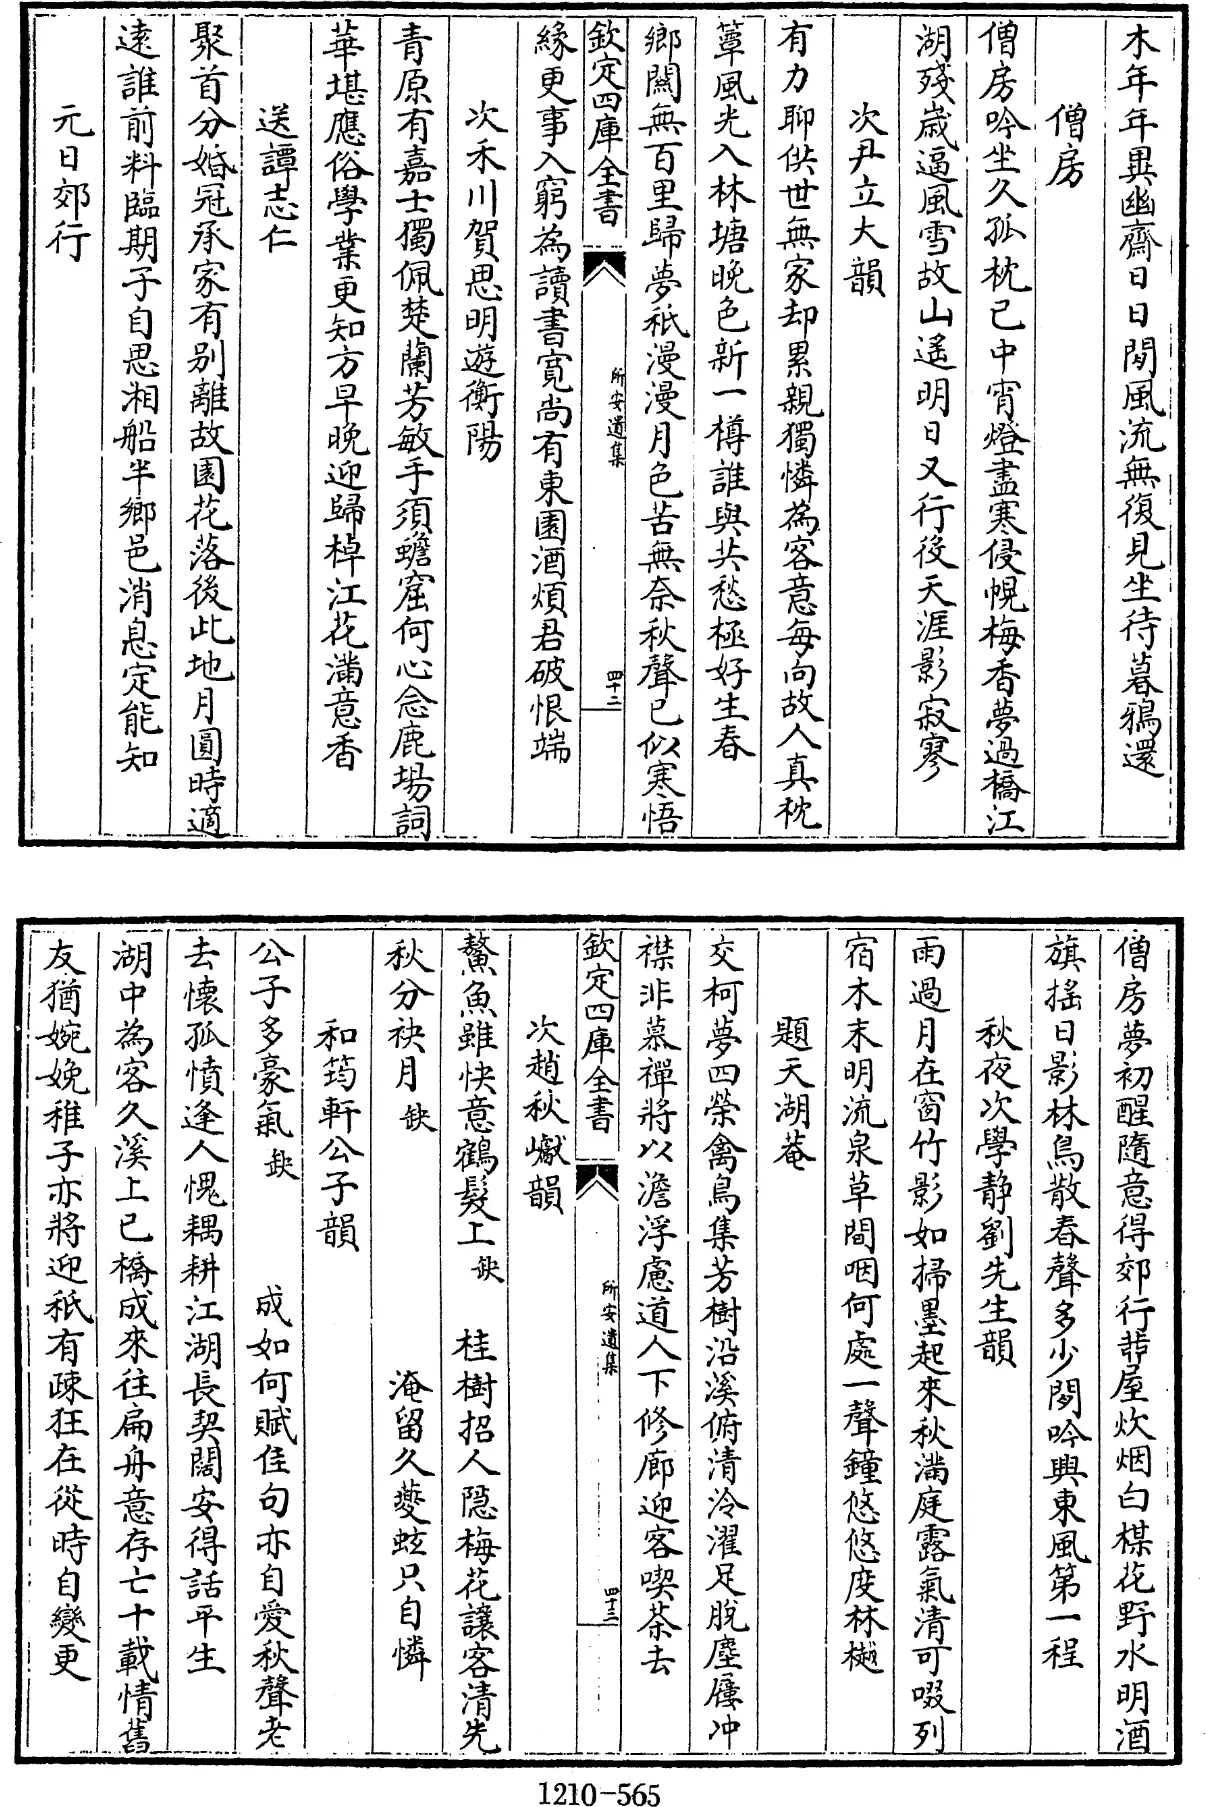 木年年異幽齋日日閒風流無復見坐待暮鴉還
僧房
僧房吟坐久孤枕已中宵燈盡寒侵幌梅香夢過橋江
湖殘歲逼風雪故山遙明日又行役天涯影寂寥
次尹立大韻
有力聊供世無家却累親獨憐為客意每向故人真枕
簟風光入林塘晚色新一樽誰與共愁極好生春
鄉關無百里歸夢秪漫漫月色苦無奈秋聲已似寒悟
欽定四庫全書
所安遺集
四十二
緣更事入窮為讀書寛尚有東園酒煩君破恨端
次禾川賀思明遊衡陽
青原有嘉士獨佩楚蘭芳敏手須蟾窟何心念鹿場詞
華堪應俗學業更知方早晚迎歸棹江花滿意香
送譚志仁
聚首分婚冠承家有别離故園花落後此地月圓時適
遠誰前料臨期子自思湘船半鄉邑消息定能知
元日郊行
僧房夢初醒隨意得郊行茆屋炊烟白楳花野水明酒
旗搖日影林鳥散春聲多少閒吟興東風第一程
秋夜次學靜劉先生韻
雨過月在窗竹影如掃墨起來秋滿庭露氣清可啜列
宿木末明流泉草間咽何處一聲鐘悠悠度林樾
題天湖菴
交柯夢四榮禽鳥集芳樹沿溪俯清泠濯足脫塵屨冲
襟非慕禪將以澹浮慮道人下修廊迎客喫茶去
欽定四庫全書
所安遺集
四十三
次趙秋巘韻
鰲魚雖快意鶴髮上缺 桂樹招人隱梅花讓客清先
秋分袂月缺 淹留久夔蚿只自憐
和筠軒公子韻
公子多豪氣缺 成如何賦佳句亦自愛秋聲老
去懷孤憤逢人愧耦耕江湖長契闊安得話平生
湖中為客久溪上已橋成來往扁舟意存亡十載情舊
友猶婉娩稚子亦將迎秪有疎狂在從時自變更
1210-565